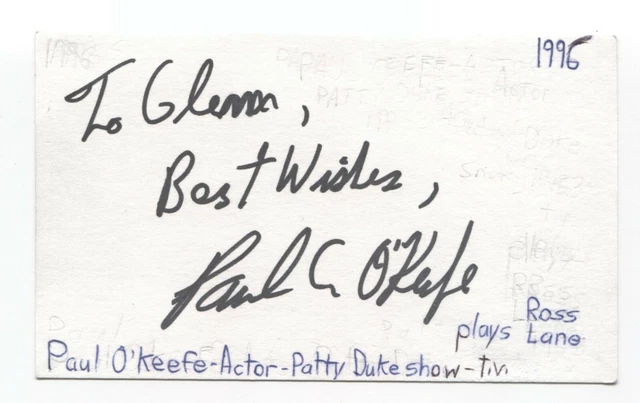 1996
To Glenn,
Best Wishes,
Paul O'Keefe
plays Ross
Lane
Paul O'Keefe-Actor-Patty Duke show-t.v.